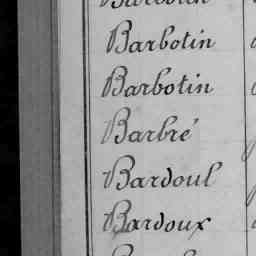 Barbotin
Barbotin
Barbré
Bardoul
Bardoux